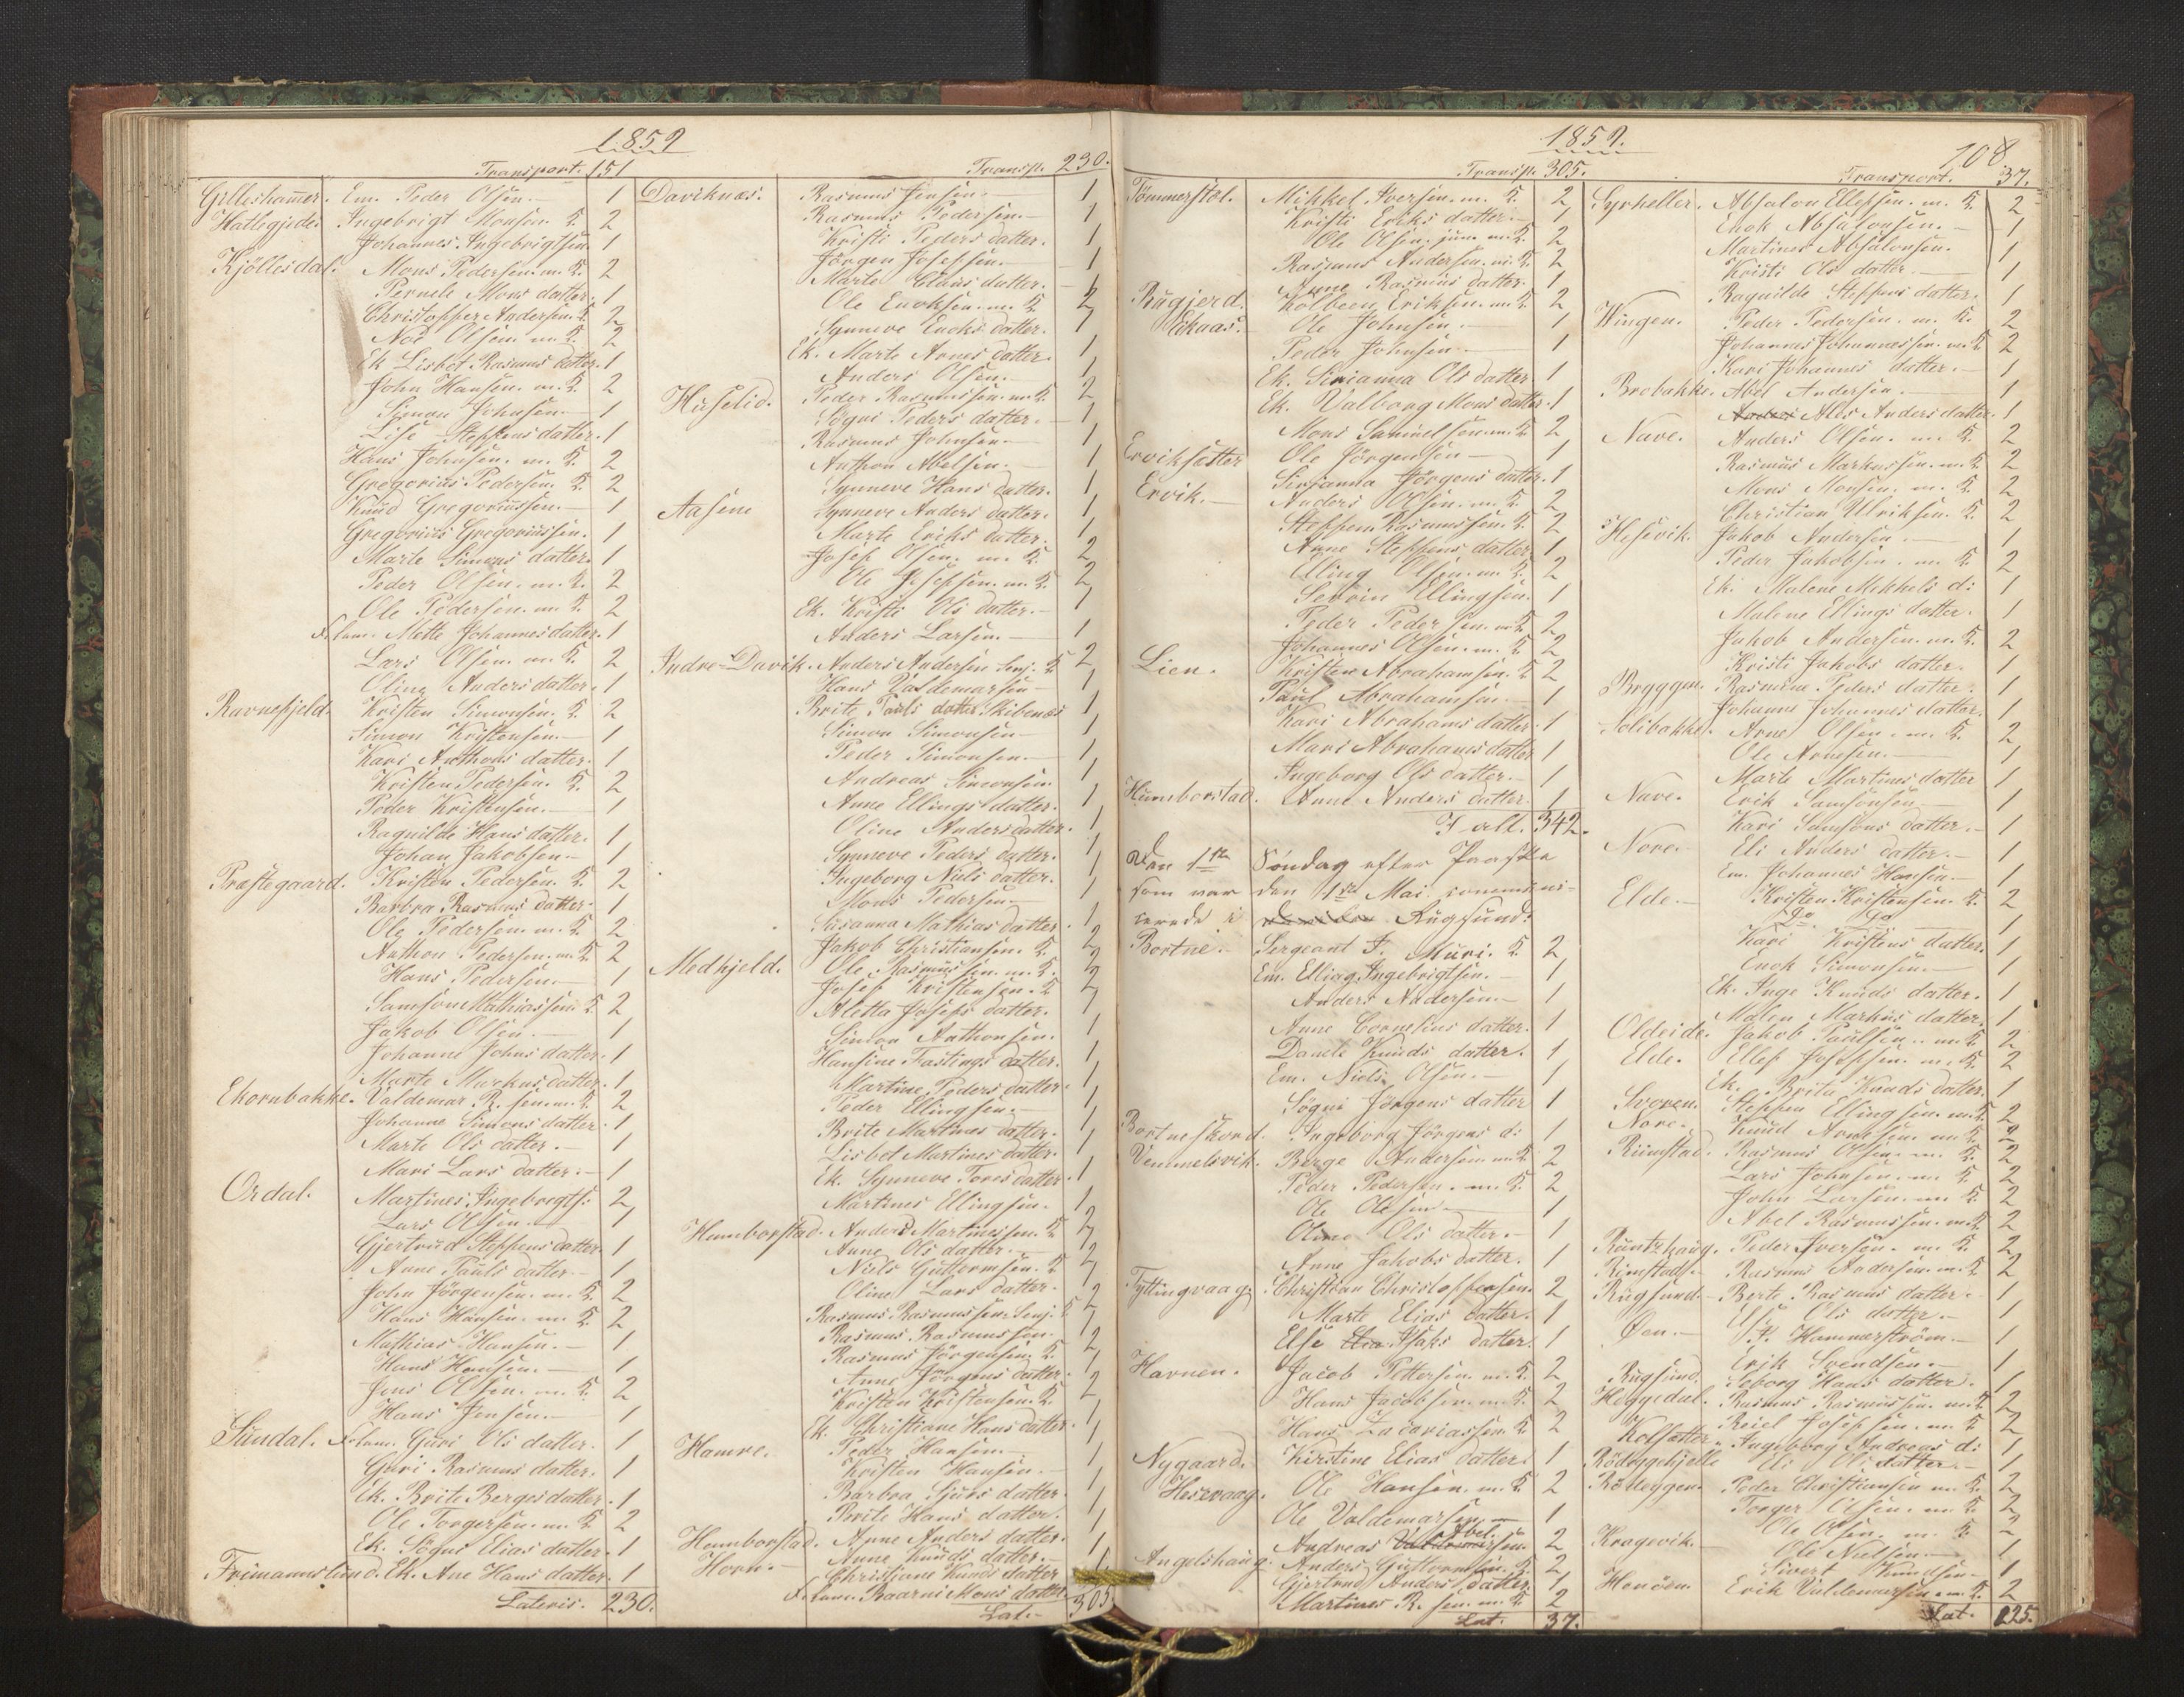 1859
Transport. 151
Gilleshamer. Em. Peder Olsen. 1
Hatlegjede. Ingebrigt Monsen K. 2
Johannes Ingebrigtsen. 1
Kjöllesdal. Mons Pedersen. m. K. 2
Pernele Mons datter. 1
Christopher Andersen. K. 2
Noe Olsen. m. K. 2
Ek Lisbet Rasmus datter. 1
John Hansen. m. K. 2
Simon Johnsen. 1
Lise Steffens datter. 1
Hans Johnsen. m. K. 2
Gregorius Pedersen. K. 2
Knud Gregoriussen. 1
Gregorius Gregoriussen. 1
Marte Simons datter. 1
Peder Olsen. m. K. 2
Ole Pedersen. m. K. 2
Mette Johannes datter. 1
Lars Olsen. m. K. 2
Oline Anders datter. 1
Ravnefjeld. Kristen Simonsen. K. 2
Simon Kristensen. 1
Kari Anthons datter. 1
Kristen Pedersen. K. 2
Peder Kristensen. 1
Ragnilde Hans datter. 1
Johan Jakobsen. 1
Præstegaard. Kristen Pedersen. K. 2
Barbra Rasmus datter. 1
Ole Pedersen. m. K. 2
Anthon Pedersen. m. K. 2
Hans Pedersen. 1
Samson Mathiassen. K. 2
Jakob Olsen. 1
Johanne Johns datter. 1
Marte Markus datter. 1
Ekornbakke. Valdemar R. sen. m. K. 2
Johanne Simons datter. 1
Marte Ols datter. 1
Mari Lars datter. 1
Ordal. Martines Ingebrigts: 2
Lars Olsen. 1
Gjertrud Steffens datter. 1
Anne Pauls datter. 1
John Jörgensen. m. K. 2
Hans Hansen. m. K. 2
Mathias Hansen. 1
Hans Hansen. 1
Jens Olsen. m. K. 2
Hans Jensen. 1
Sundal. Guri Ols datter. 1
Guri Rasmus datter. 1
Ek. Brite Berges datter. 1
Ole Torgersen. m. K. 2
Ek. Sögni Elias datter. 1
Frimannslund. Ek. Ane Hans datter. 1
Lateris. 230.
Transp. 230.
Daviknæs. Rasmus Jensen. 1
Rasmus Pedersen. 1
Kristi Peders datter. 1
Jörgen Josefsen. 1
Marte Claus datter. 1
Ole Enoksen. m. K. 2
Synneve Enoks datter. 1
Ek. Marte Arnes datter. 1
Anders Olsen. 1
Huselid. Peder Rasmussen. m. K. 2
Sögni Peders datter. 1
Rasmus Johnsen. 1
Anthon Abelsen. 1
Synneve Hans datter. 1
Aasene Synneve Anders datter. 1
Marte Eriks datter. 1
Josef Olsen. m. K. 2
Ole Josefsen. m. K. 2
Ek. Kristi Ols datter. 1
Anders Larsen. 1
Indre-Davik. Anders Andersen Senj. K 2
Hans Valdemarsen 1
Brite Pauls datter Skibenæs 1
Simon Simonsen 1
Peder Simonsen. 1
Andreas Simonsen 1
Anne Ellings datter. 1
Oline Anders datter. 1
Synneve Peders datter. 1
Ingeborg Niels datter. 1
Mons Pedersen. 1
Susanna Mathias datter 1
Jakob Christiansen. K. 2
Medhjeld. Ole Rasmussen. m. K. 2
Josef Kristensen. K 2
Aletta Josefs datter. 1
Simon Anthonsen. 1
Hansine Fastings datter. 1
Martine Peders datter 1
Peder Ellingsen. 1
Brite Martines datter. 1
Lisbet Martines datter. 1
Ek. Synneve Tores datter 1
Martines Ellingsen. 1
Hennborstad. Anders Martinessen. K 2
Anne Ols datter. 1
Niels Guttormsen. K 2
Oline Lars datter. 1
Rasmus Rasmussen Senj. K 2
Rasmus Rasmussen 1
Rasmus Jörgensen. K 2
Anne Jörgens datter. 1
Kristen Kristensen. K. 2
Ek. Christiane Hans datter. 1
Hamre. Peder Hansen. 1
Kristen Hansen. 1
Barbra Sjurs datter. 1
Brite Hans datter. 1
Hennborstad. Anne Anders datter. 1
Horn. Anne Knuds datter. 1
Christiane Knuds datter
Mons datter.
Lat. 305
1859.
108
Transp. 305.
Tömmerstøl. Mikkel Iversen. m. K. 2
Kristi Eriks datter. 1
Ole Olsen. jun. m. K. 2
Rasmus Andersen. m. K. 2
Anne Rasmus datter. 1
Rugjerd. Kolbeen Eriksen. m. K. 2
Ole Johnsen. 1
Peder Johnsen 1
Ek. Sirianna Ols datter 1
Ek. Valborg Mons datter. 1
Mons Samuelsen. m. K. 2
Erviksetter Ole Jörgensen 1
Sirianna Jörgens datter. 1
Ervik. Anders Olsen. m. K. 2
Steffen Rasmussen. K. 2
Anne Steffens datter 1
Elling Olsen. m. K. 2
Severin Ellingsen. 1
Peder Pedersen. m. K. 2
Johannes Olsen. m. K. 2
Lien. Kristen Abrahamsen. K 2
Paul Abrahamsen. 1
Kari Abrahams datter. 1
Mari Abrahams datter 1
Ingeborg Ols datter. 1
Hennborstad. Anne Anders datter. 1
I alt. 342.
Den 1ste Søndag efter Paaske
som var den 1ste Mai, communi-
cerede i Rugsund:
Bortne. Sergeant F. Muri. K. 2
Em. Elling Ingebrigtsen. 1
Anders Andersen. 1
Anne Cornelius datter. 1
Knuds datter. 1
Em. Niels Olsen. 1
Sögni Jörgens datter 1
Ingeborg Jörgens d: 1
Vemmelsvik. Berge Andersen m. K. 2
Peder Pedersen. m. K. 2
Ole Olesen 1
Oline Ols datter. 1
Anne Jakobs datter. 1
Tyttingvaag. Christian Christoffersen. 2
Marte Elias datter. 1
Else Isaks datter. 1
Havnen. Jacob Pettersen. m. K. 2
Hans Jacobsen. m. K. 2
Hans Zacariassen. K 2
Nygaard. Kirstine Elias datter. 1
Hesevaag. Ole Hansen. m. K. 2
Ole Valdemarsen. 1
Andreas Abel.sen. 2
Angelshaug. Anders Guttormsen. K. 2
Gjertrud Anders datter 1
Martines R. sen. m. K. 2
Lat. 37.
Transport. 37.
Syrheller. Absalon Ellefsen. m. K. 2
Enok Absalonsen. 1
Martines Absalonsen. 1
Kristi Ols datter. 1
Ragnilde Steffens datter. 1
Wingen. Peder Pedersen. m. K. 2
Johannes Johannessen. m. K 2
Kari Johannes datter. 1
Brobakke. Abel Andersen. 1
Ales Anders datter. 1
Nave. Anders Olsen. m. K. 2
Rasmus Markussen. m. K 2
Mons Monsen. m. K. 2
Christian Ulriksen. K. 2
Hesevik. Jakob Andersen. 1
Peder Jakobsen. m. K. 2
Ek. Malene Mikkels d: 1
Malene Ellings datter. 1
Jakob Andersen. m. K. 2
Kristi Jakobs datter. 1
Bryggen. Rasmine Peders datter. 1
Johanne Johannes datter. 1
Solibakke. Arne Olsen. m. K. 2
Ole Arnesen. 1
Marte Martines datter 1
Nave. Erik Samsonsen 1
Kari Samsons datter. 1
Nore. Eli Anders datter. 1
Em. Johannes Hansen. 1
Elde. Kristen Kristensen. K. 2
Do Do 1
Kari Kristens datter. 1
Enok Simonsen. 1
Ek. Inge Knuds datter. 1
Malen Markus datter. 1
Oldeide. Jakob Paulsen. m. K. 2
Elde. Ellef Josefsen. m. K. 2
Ek. Brita Knuds datter. 1
Svoren. Steffen Ellingsen. m. K. 2
Nore. Knud Arnesen. m. K. 2
Rimstad. Rasmus Olsen. m. K. 2
Lars Johnsen. m. K. 2
John Larsen. m. K. 2
Abel Rasmussen. m. K. 2
Runtzhaug. Peder Iversen. m. K. 2
Rimstad. Rasmus Andersen. m. K. 2
Rugsund. Berte Rasmus datter. 1
Else Ols datter. 1
Øen. Hammerström. 1
Erik Svendsen. 1
Rugsund. Seborg Hans datter. 1
Heggedal. Rasmus Rasmussen. m. K. 2
Reiel Josefsen. m. K 2
Kolsætter. Ingeborg Andreas d: 1
Ols datter. 1
Rödleggen. Peder Christiansen m. K. 2
Torger Olsen. m. K. 2
Ole Olsen. m. K. 2
Kragevik. Ole Nielsen. 1
Sivert Knudsen. 1
Erik Valdemarsen. m. K. 2
Lat. 125.